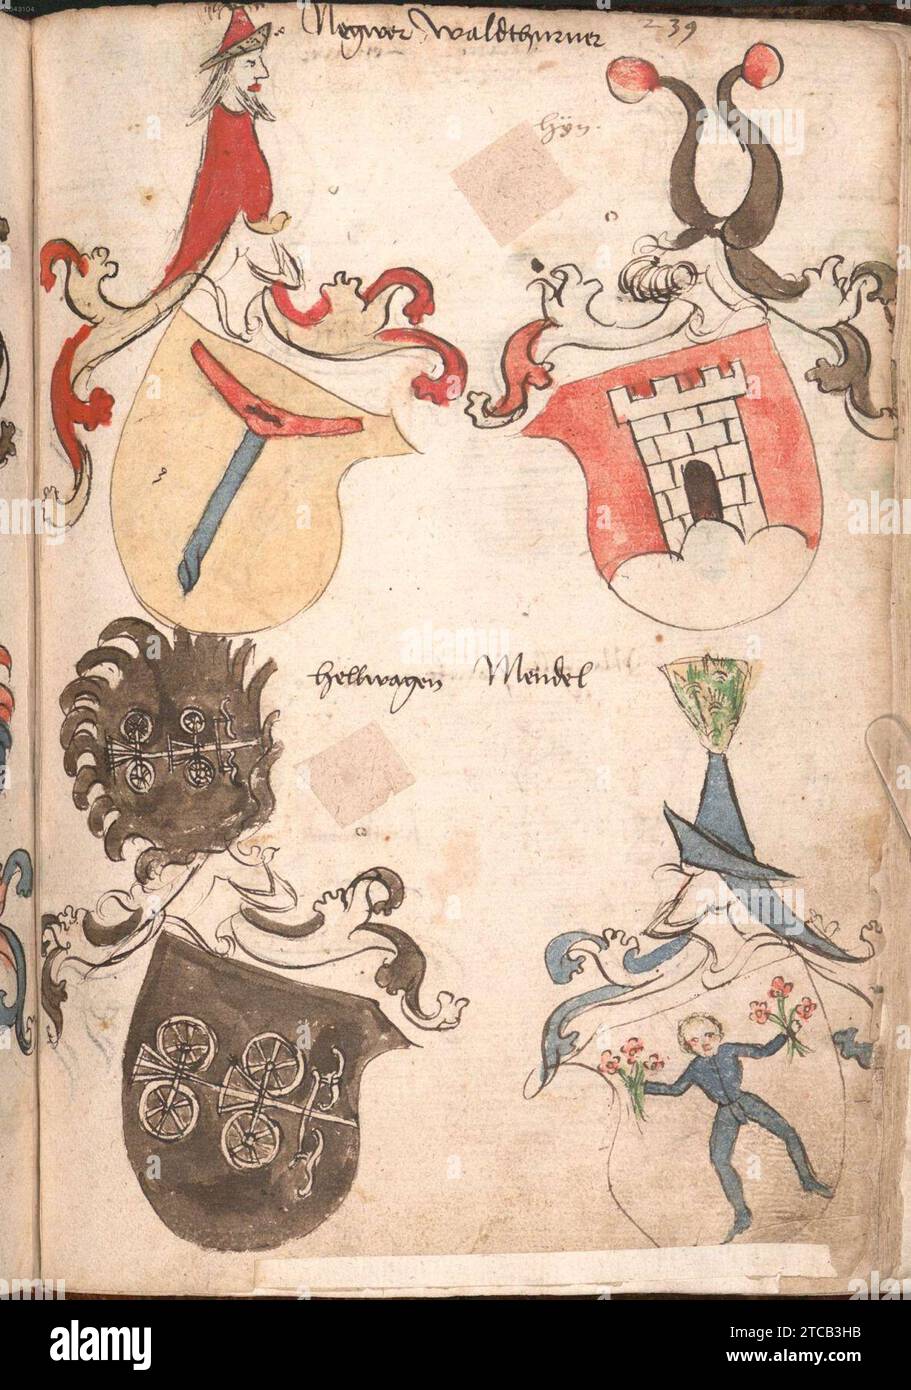 Negwer Waldthurner 239
hÿn.
hellwagen Mendel
alamy
Image ID: 2TCB3HB
www.alamy.com